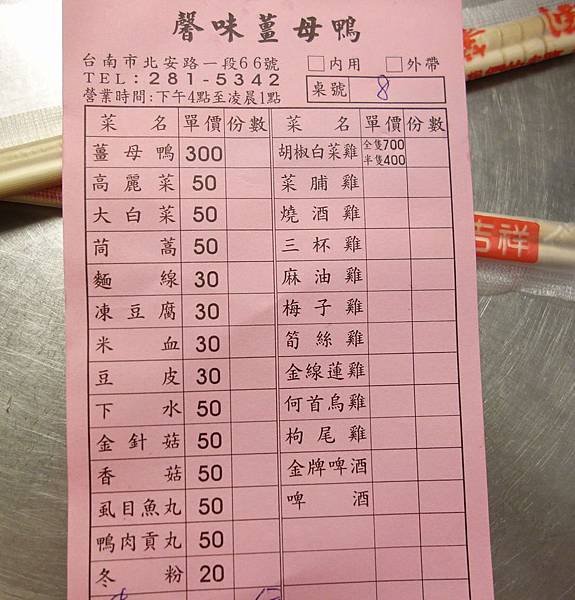 馨味薑母鴨
台南市北安路一段66號
TEL:281-5342
營業時間:下午4點至凌晨1點
內用 外帶
桌號 8
菜名 單價 份數 菜名 單價 份數
薑母鴨 300 胡椒白菜雞 全隻700 半隻400
高麗菜 50 菜脯雞
大白菜 50 燒酒雞
茼蒿 50 三杯雞
麵線 30 麻油雞
凍豆腐 30 梅子雞
米血 30 筍絲雞
豆皮 30 金線蓮雞
下水 50 何首烏雞
金針菇 50 枸尾雞
香菇 50 金牌啤酒
虱目魚丸 50 啤酒
鴨肉貢丸 50
冬粉 20
吉祥